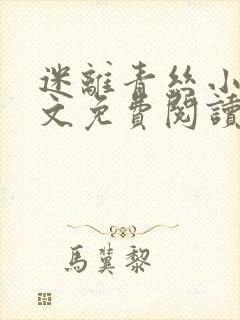 迷離青絲小
文免費閱讀
馬蓂黎